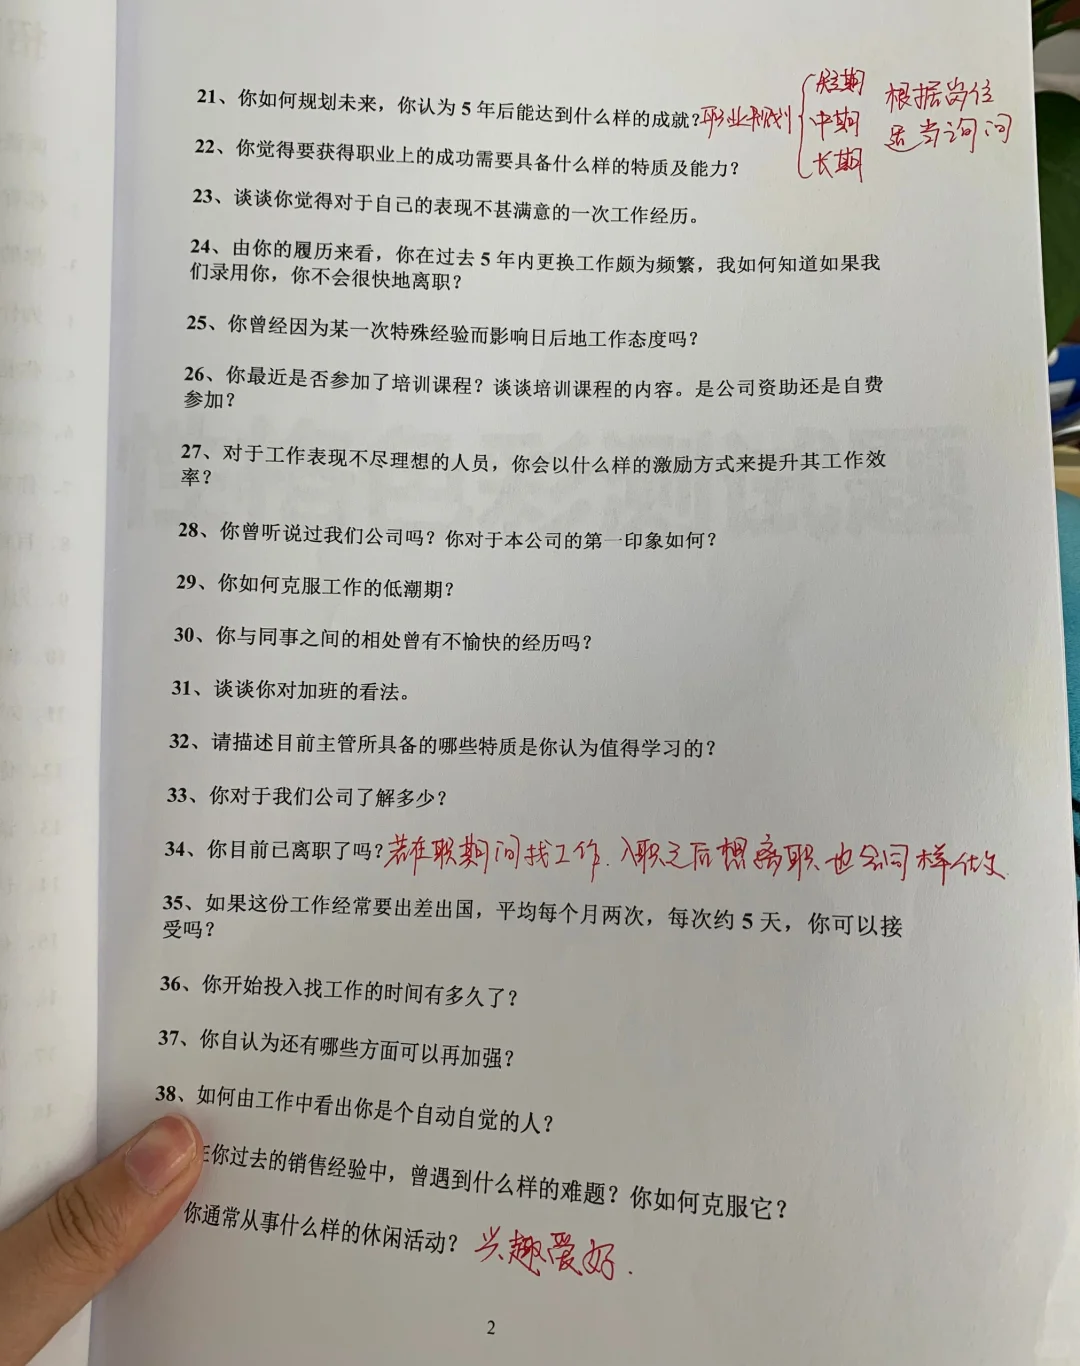 21、你如何规划未来，你认为 5 年后能达到什么样的成就？职业规划 短期 中期 长期 根据岗位 适当询问
22、你觉得要获得职业上的成功需要具备什么样的特质及能力？
23、谈谈你觉得对于自己的表现不甚满意的一次工作经历。
24、由你的履历来看，你在过去 5 年内更换工作颇为频繁，我如何知道如果我
们录用你，你不会很快地离职？
25、你曾经因为某一次特殊经验而影响日后地工作态度吗？
26、你最近是否参加了培训课程？谈谈培训课程的内容。是公司资助还是自费
参加？
27、对于工作表现不尽理想的人员，你会以什么样的激励方式来提升其工作效
率？
28、你曾听说过我们公司吗？你对于本公司的第一印象如何？
29、你如何克服工作的低潮期？
30、你与同事之间的相处曾有不愉快的经历吗？
31、谈谈你对加班的看法。
32、请描述目前主管所具备的哪些特质是你认为值得学习的？
33、你对于我们公司了解多少？
34、你目前已离职了吗？若在职期间找工作、入职之后想离职也会同样做
35、如果这份工作经常要出差出国，平均每个月两次，每次约 5 天，你可以接
受吗？
36、你开始投入找工作的时间有多久了？
37、你自认为还有哪些方面可以再加强？
38、如何由工作中看出你是个自动自觉的人？
在你过去的销售经验中，曾遇到什么样的难题？你如何克服它？
你通常从事什么样的休闲活动？兴趣爱好.
2